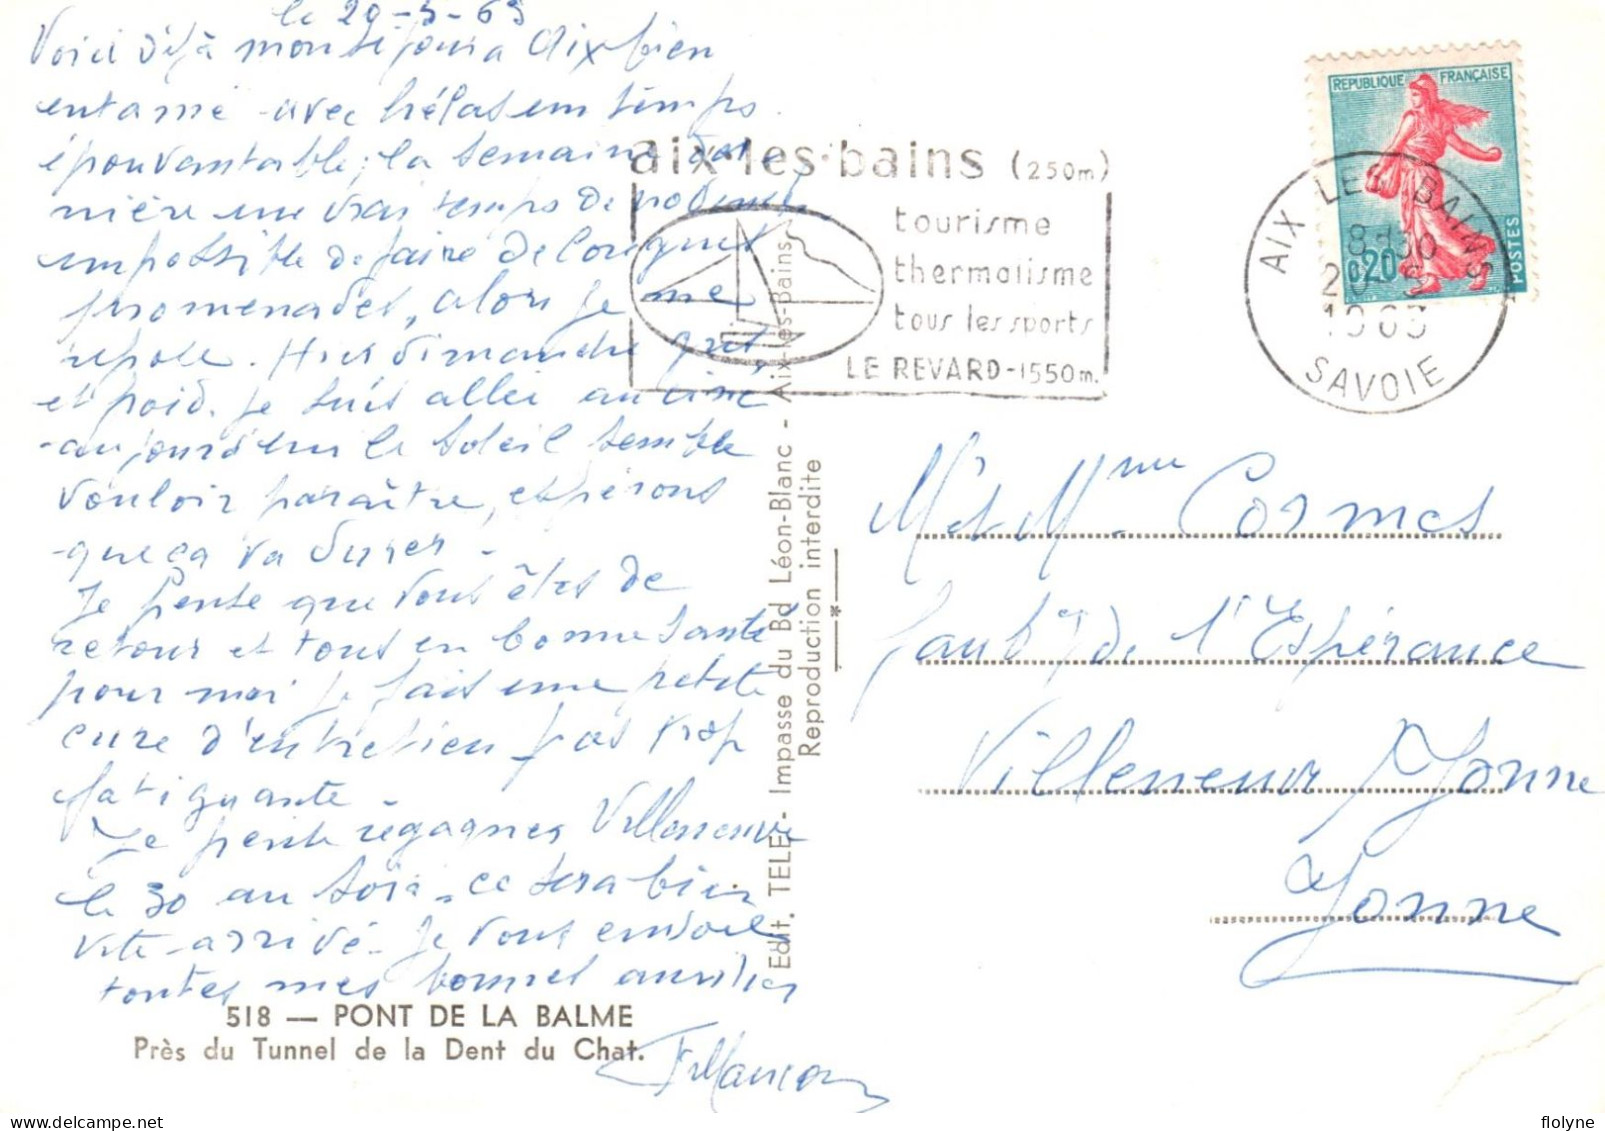 le 20-5-63
Voici déjà mon séjour à Aix bien
entamé - avec hélas un temps
épouvantable ; la semaine der
nière un vrai temps de
impossible de faire de longues
promenades, alors je me
repose. Hier dimanche gris
et froid. je suis allée au ciné
- aujourd'hui le soleil semble
vouloir paraître, espérons
que ça va durer -
Je pense que vous êtes de
retour et tous en bonne santé
pour moi je fais une petite
cure d'entretien pas trop
fatigante -
Je pense regagner Villeneuve
le 30 au soir - ce sera bien
vite arrivé - Je vous envoie
toutes mes bonnes amitiés
518 — PONT DE LA BALME
Près du Tunnel de la Dent du Chat.
Edit. TELE - Impasse du Bd Léon-Blanc - Aix-les-Bains
Reproduction interdite
aix-les-bains (250m)
tourisme
thermalisme
tous les sports
LE REVARD-1550m.
REPUBLIQUE FRANÇAISE
0,20
POSTES
AIX LES BAINS
8-30
20-5
1963
SAVOIE
Mr et Mme Cormes
Faubg de l'Espérance
Villeneuve s/ Yonne
Yonne
flolyne